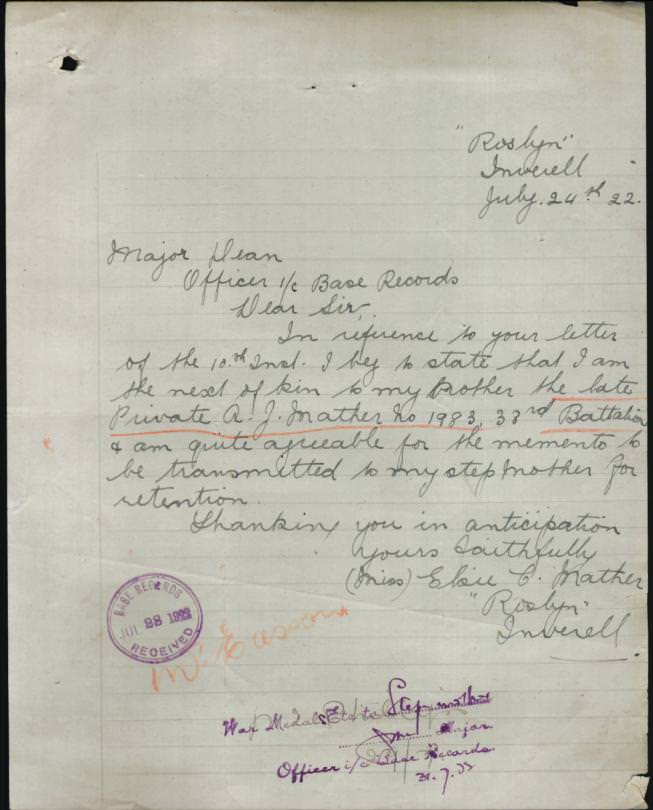 "Roslyn"
Inverell
July. 24th 22.
Major Dean
Officer i/c Base Records
Dear Sir,
In reference to your letter
of the 10th Inst. I beg to state that I am
the next of kin to my brother the late
Private A. J. Mather No 1983, 33rd Battalion
& am quite agreeable for the memento to
be transmitted to my stepmother for
retention.
Thanking you in anticipation
Yours faithfully
(Miss) Elsie C. Mather
"Roslyn"
Inverell
BASE RECORDS
JUL 28 1922
RECEIVED
War Medals Etc to Stepmother
Major
Officer i/c Base Records